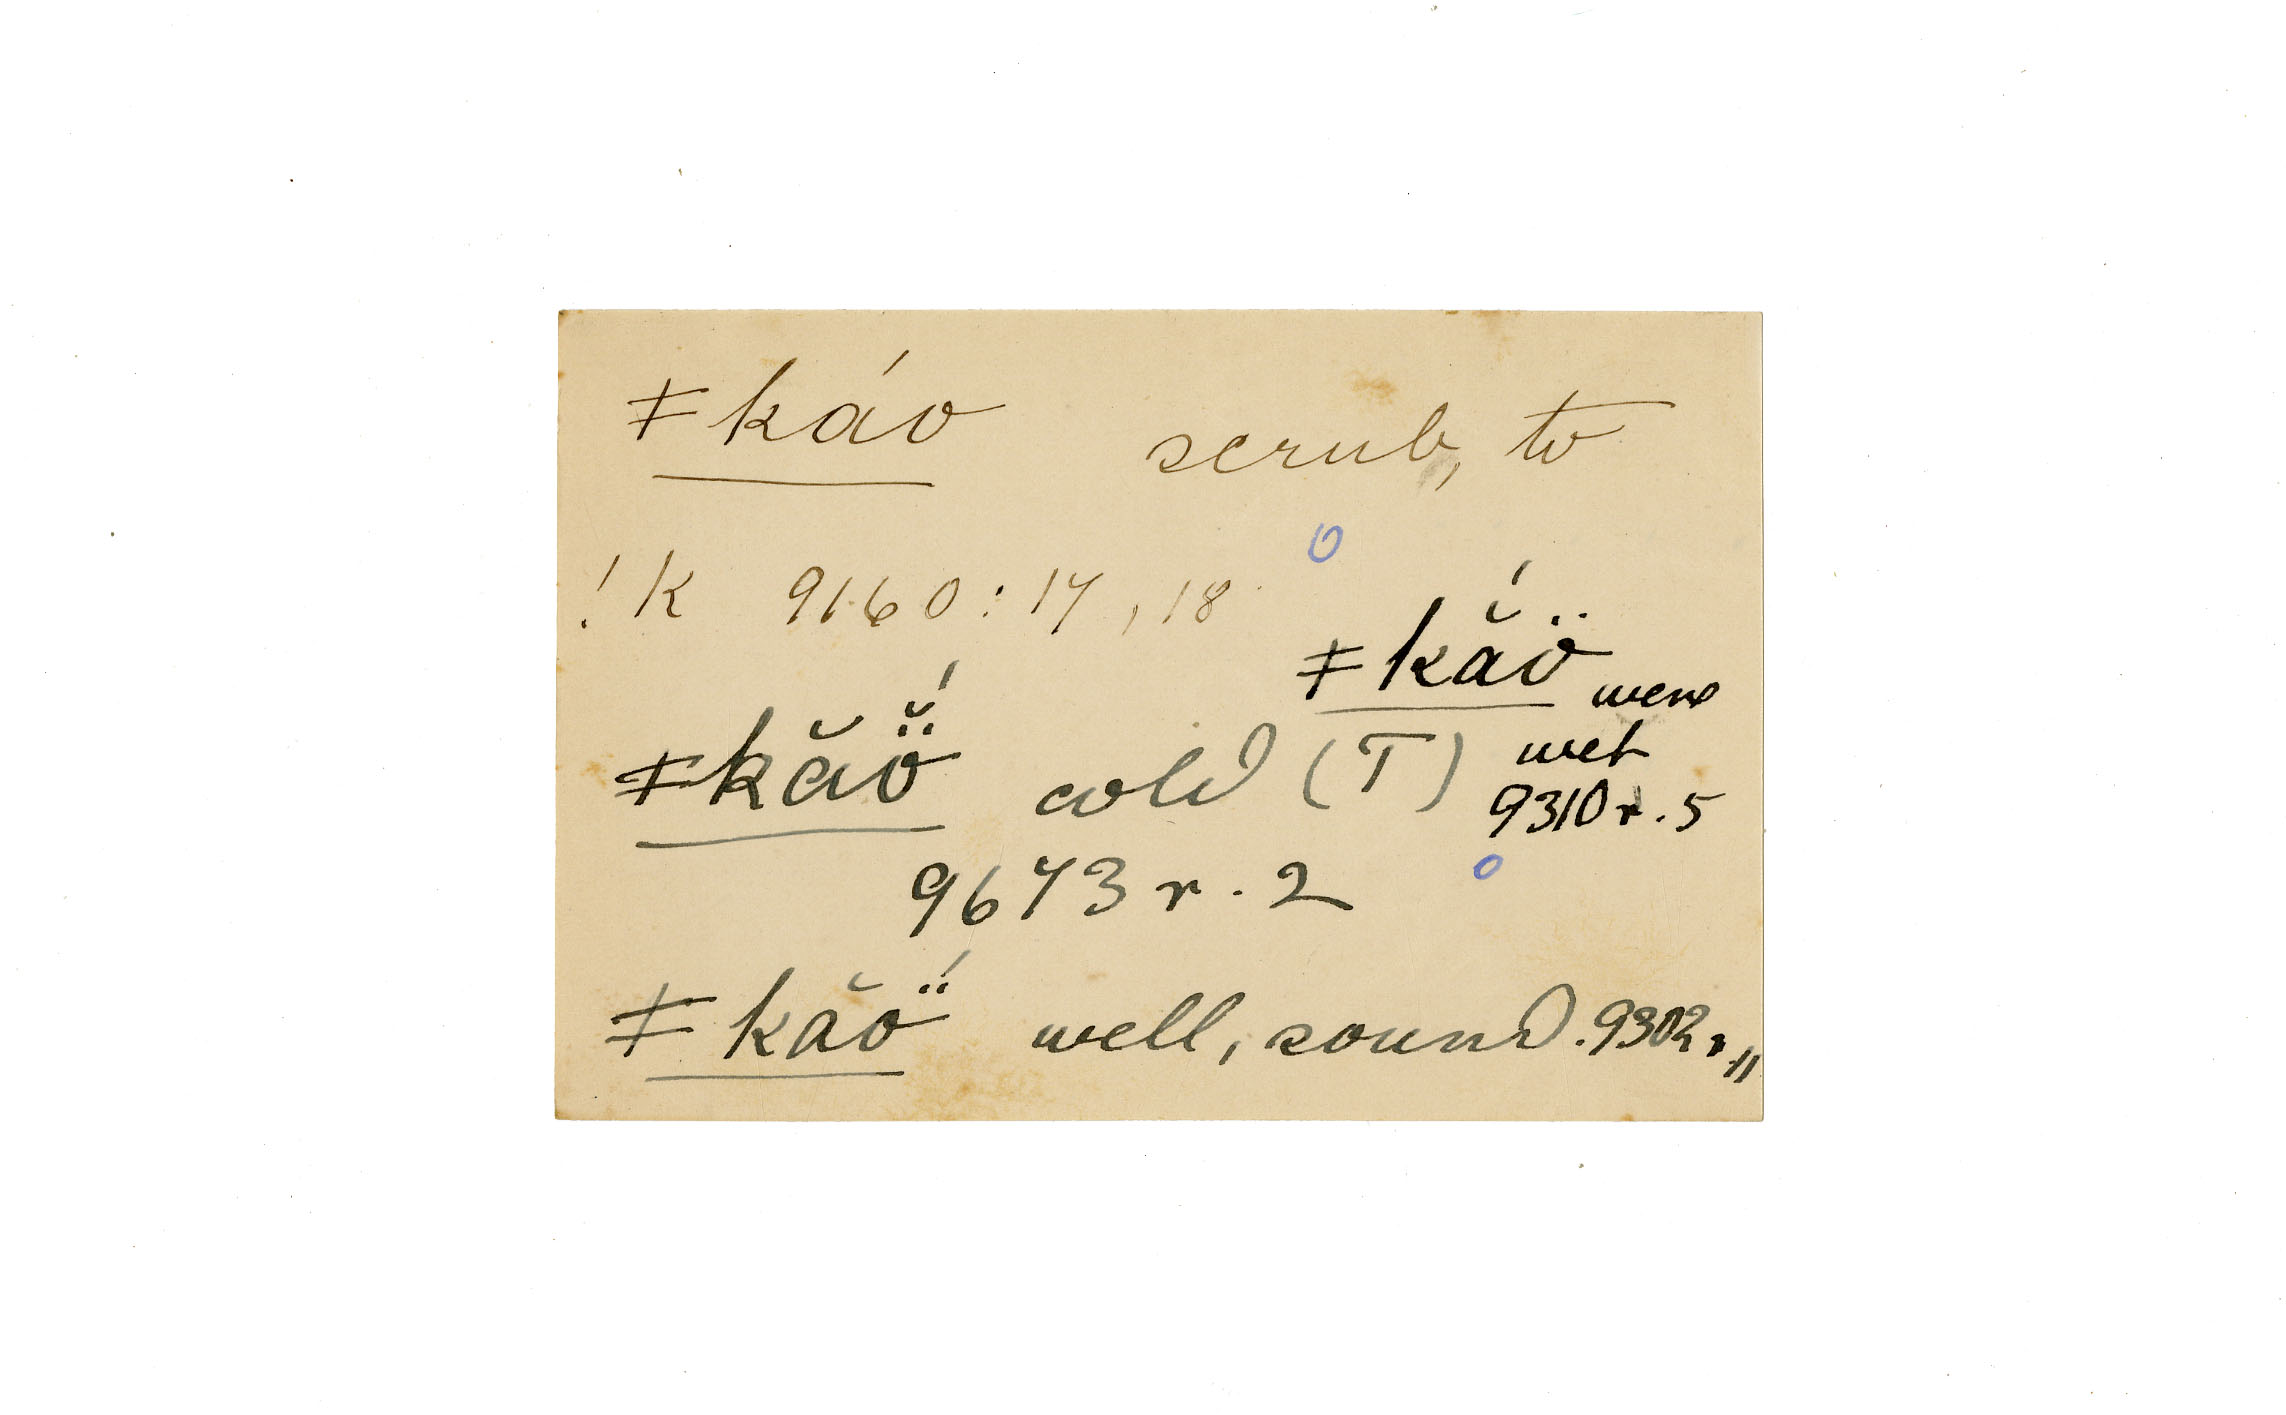 ǂkáo scrub, to
!k 9160:17,18
ǂkắö were
wet
9310 r. 5
ǂkăö̆́ cold (T)
9673 r. 2
ǂkăö́ well, sound. 9302 r. 11